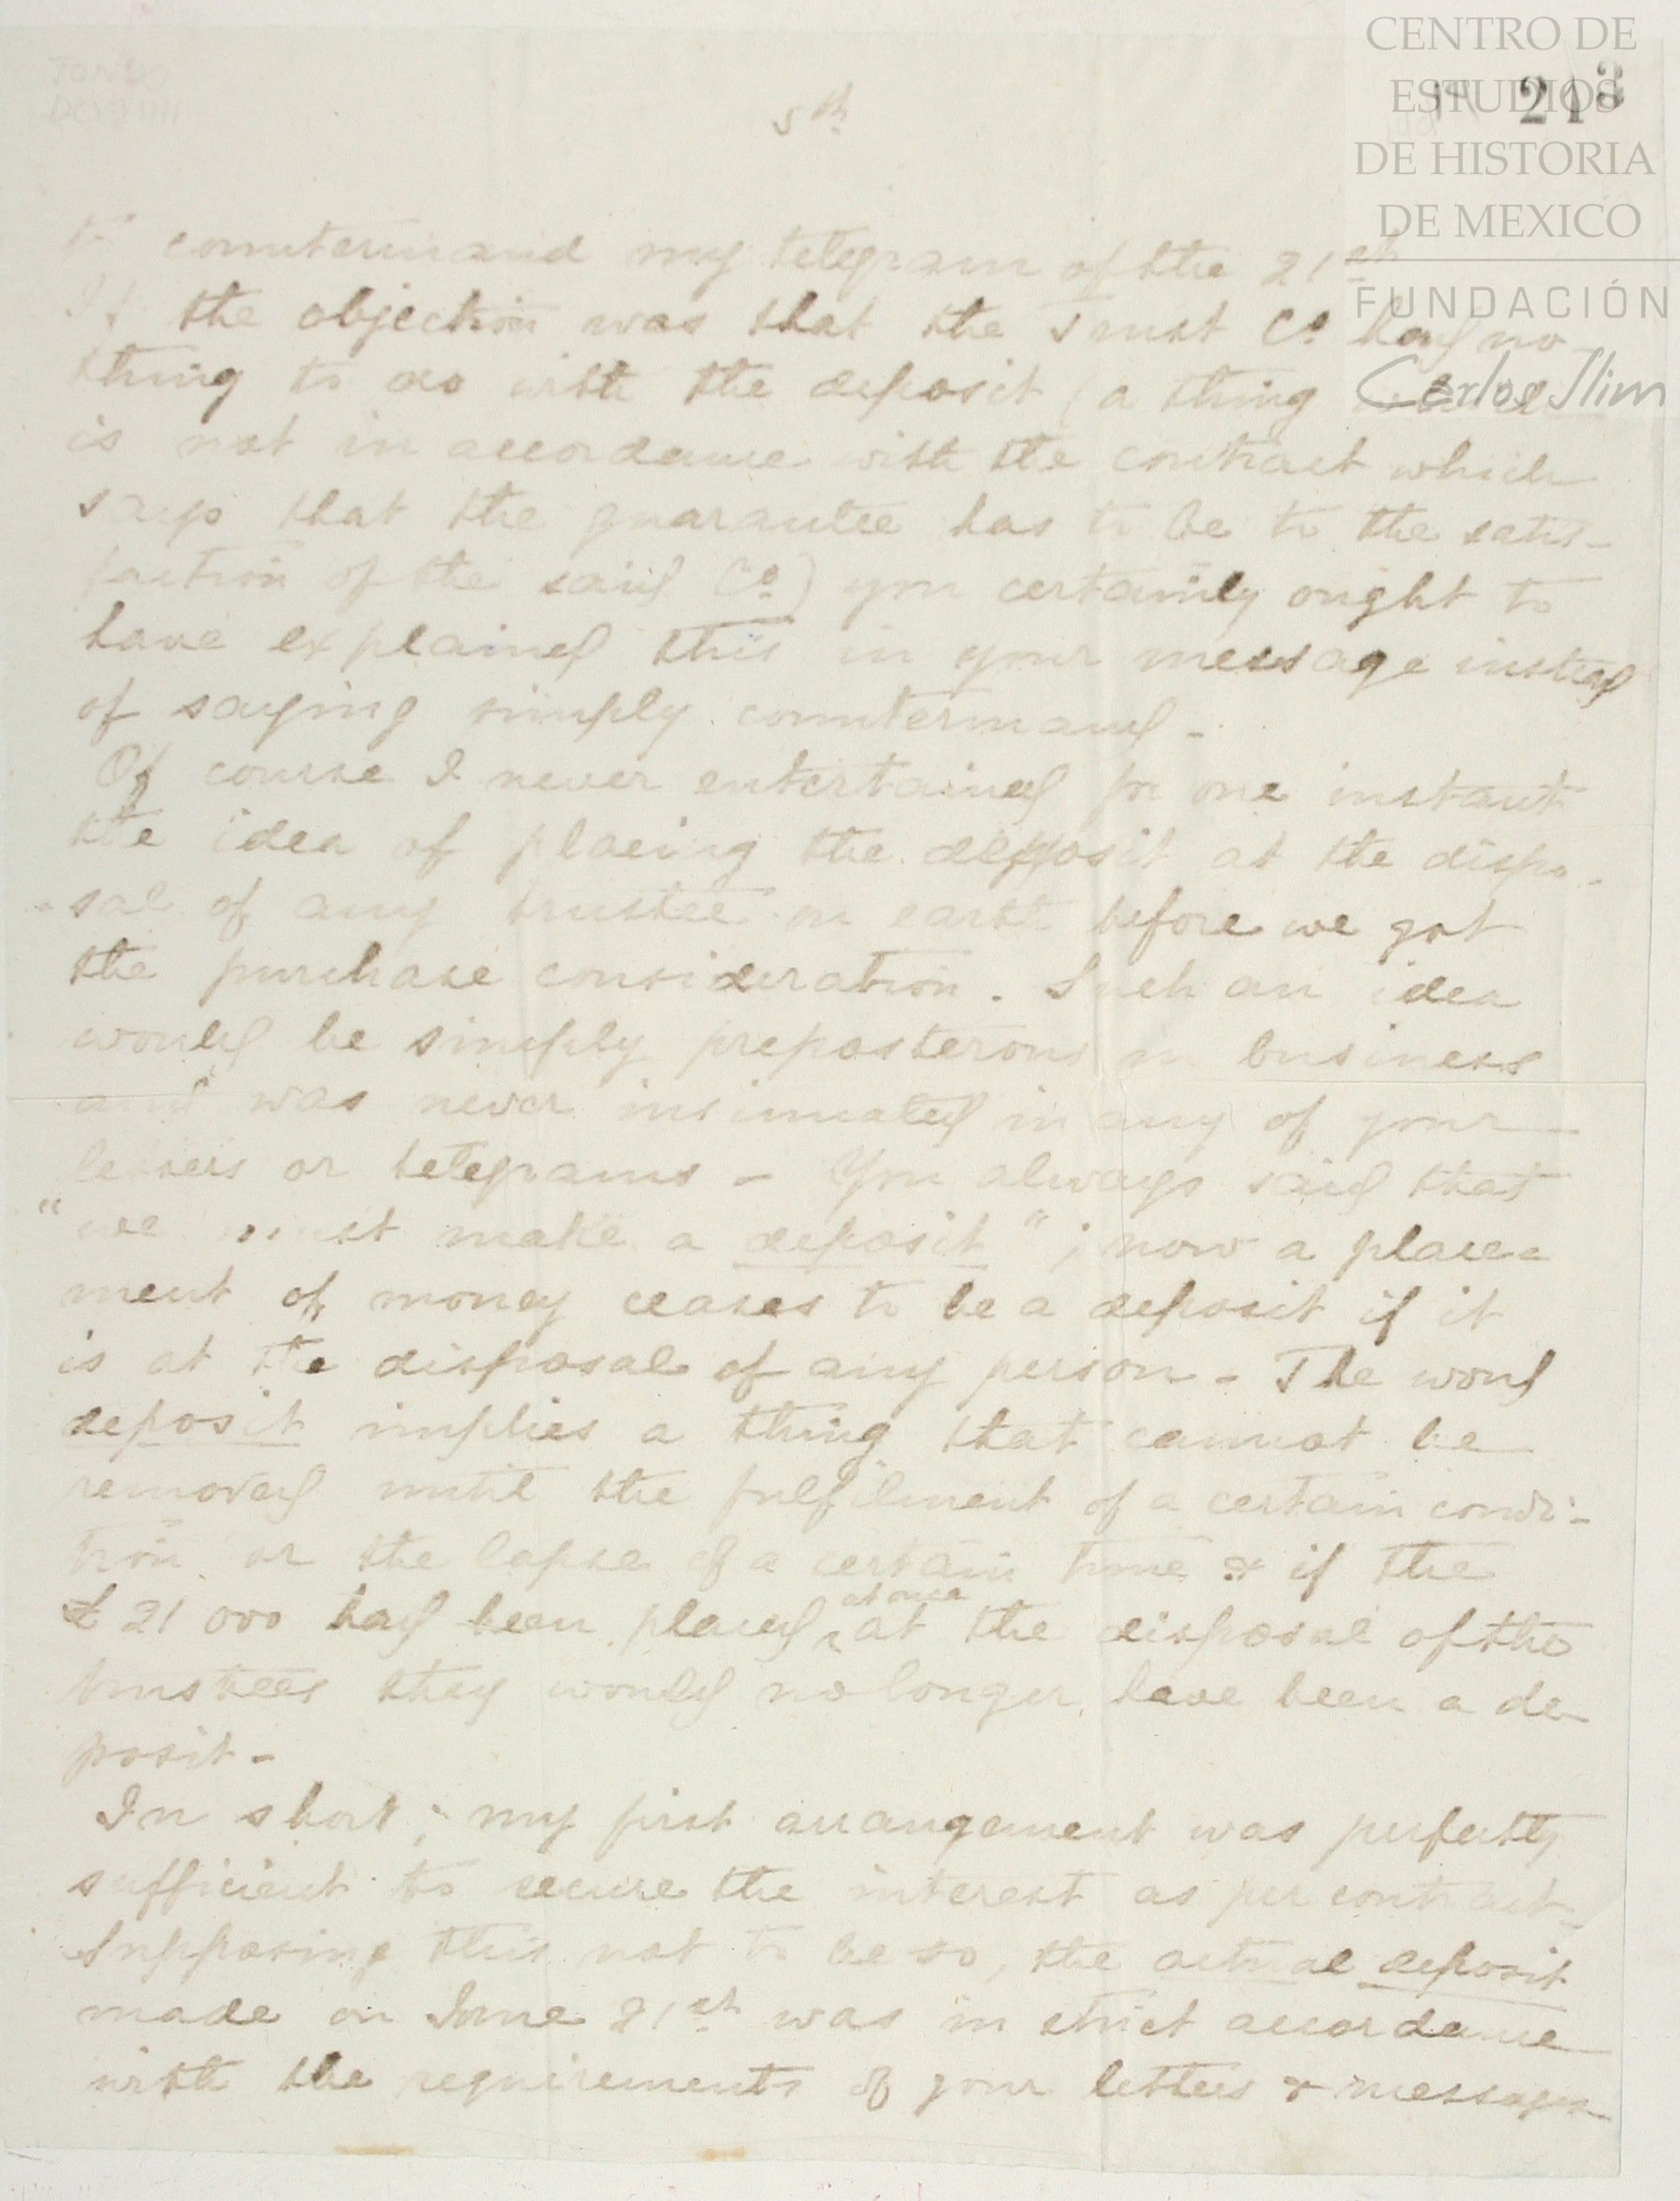 CENTRO DE
ESTUDIOS
DE HISTORIA
DE MEXICO
FUNDACIÓN
Carlos Slim
FONDO
213
5th
to countermand my telegram of the 21st
If the objection was that the Trust Co had no-
thing to do with the deposit (a thing which
is not in accordance with the contract which
says that the guarantee has to be to the satis-
faction of the said Co) you certainly ought to
have explained this in your message instead
of saying simply countermand -
Of course I never entertained for one instant
the idea of placing the deposit at the dispo-
-sal of any trustee on earth before we got
the purchase consideration. Such an idea
would be simply preposterous in business
and was never insinuated in any of your
letters or telegrams - You always said that
"we must make a deposit"; now a place-
ment of money ceases to be a deposit if it
is at the disposal of any person - The word
deposit implies a thing that cannot be
removed until the fulfilment of a certain condi-
tion or the lapse of a certain time & if the
£21 000 had been placed at once at the disposal of the
trustees they would no longer have been a de-
posit -
In short; my first arrangement was perfectly
sufficient to secure the interest as per contract.
Supposing this not to be so, the actual deposit
made on June 21st was in strict accordance
with the requirements of your letters & messages